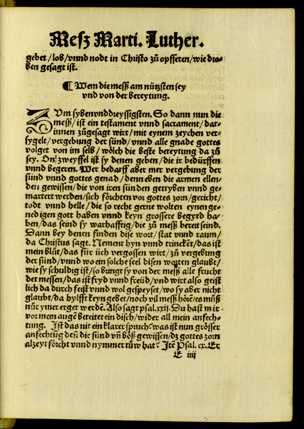 Mesz Marti. Luther.
gebet / lob / vnnd nodt in Christo zů opfferen / wie dro-
ben gesagt ist.
¶ Wem die mess am nützsten sey
vnd von der bereytung.
ZVm sybenvnddreyssigsten. So dann nun die
mess / ist ein testament vnnd sacrament / dar-
innen zůgesagt wirt / mit eynem zeychen ver-
sygelt / vergebung der sünd / vnnd alle gnade gottes
volget von im selb / wölch die beste bereytung da zů
sey. On zweyffel ist sy denen geben / die ir bedürffen
vnnd begeren. Wer bedarff aber mer vergebung der
sünd vnnd gottes genad / denn eben die armen ellen-
den gewissen / die von iren sünden getryben vnnd ge-
martert werden / sich förchten vor gottes zorn / gericht /
todt vnnd helle / die so recht gerne wolten eynen ge-
nedigen gott haben vnnd keyn grössere begyrd ha-
ben / das seind sy warhafftig / die zů mess bereit seind.
Dann bey denen finden dise wort / stat vnnd raum /
da Christus sagt. Nement hyn vnnd trincket / das ist
mein blůt / das für üch vergossen wirt / zů vergebung
der sünd / vnnd wo ein solche seel disen worten glaubt /
wie sy schuldig ist / so bringt sy von der mess alle frucht
der messen / das ist fryd vnnd freüd / vnd wirt also geist
lich da durch feist vnnd wol gespeyset / wo sy aber nicht
glaubt / da hylfft keyn gebet / noch vil mess hören / es můß
nur ymer erger werden. Also sagt psal. xxij. Du hast mir
vor mein augen bereitet ein disch / wider all mein anfech-
tung. Ist das nit ein klarer spruch: was ist nun grösser
anfechtung denn die sünd vnd böß gewissen / dz gottes zorn
alzeyt förcht vnnd nymmer růw hat? Jtem Psal.
E iiij